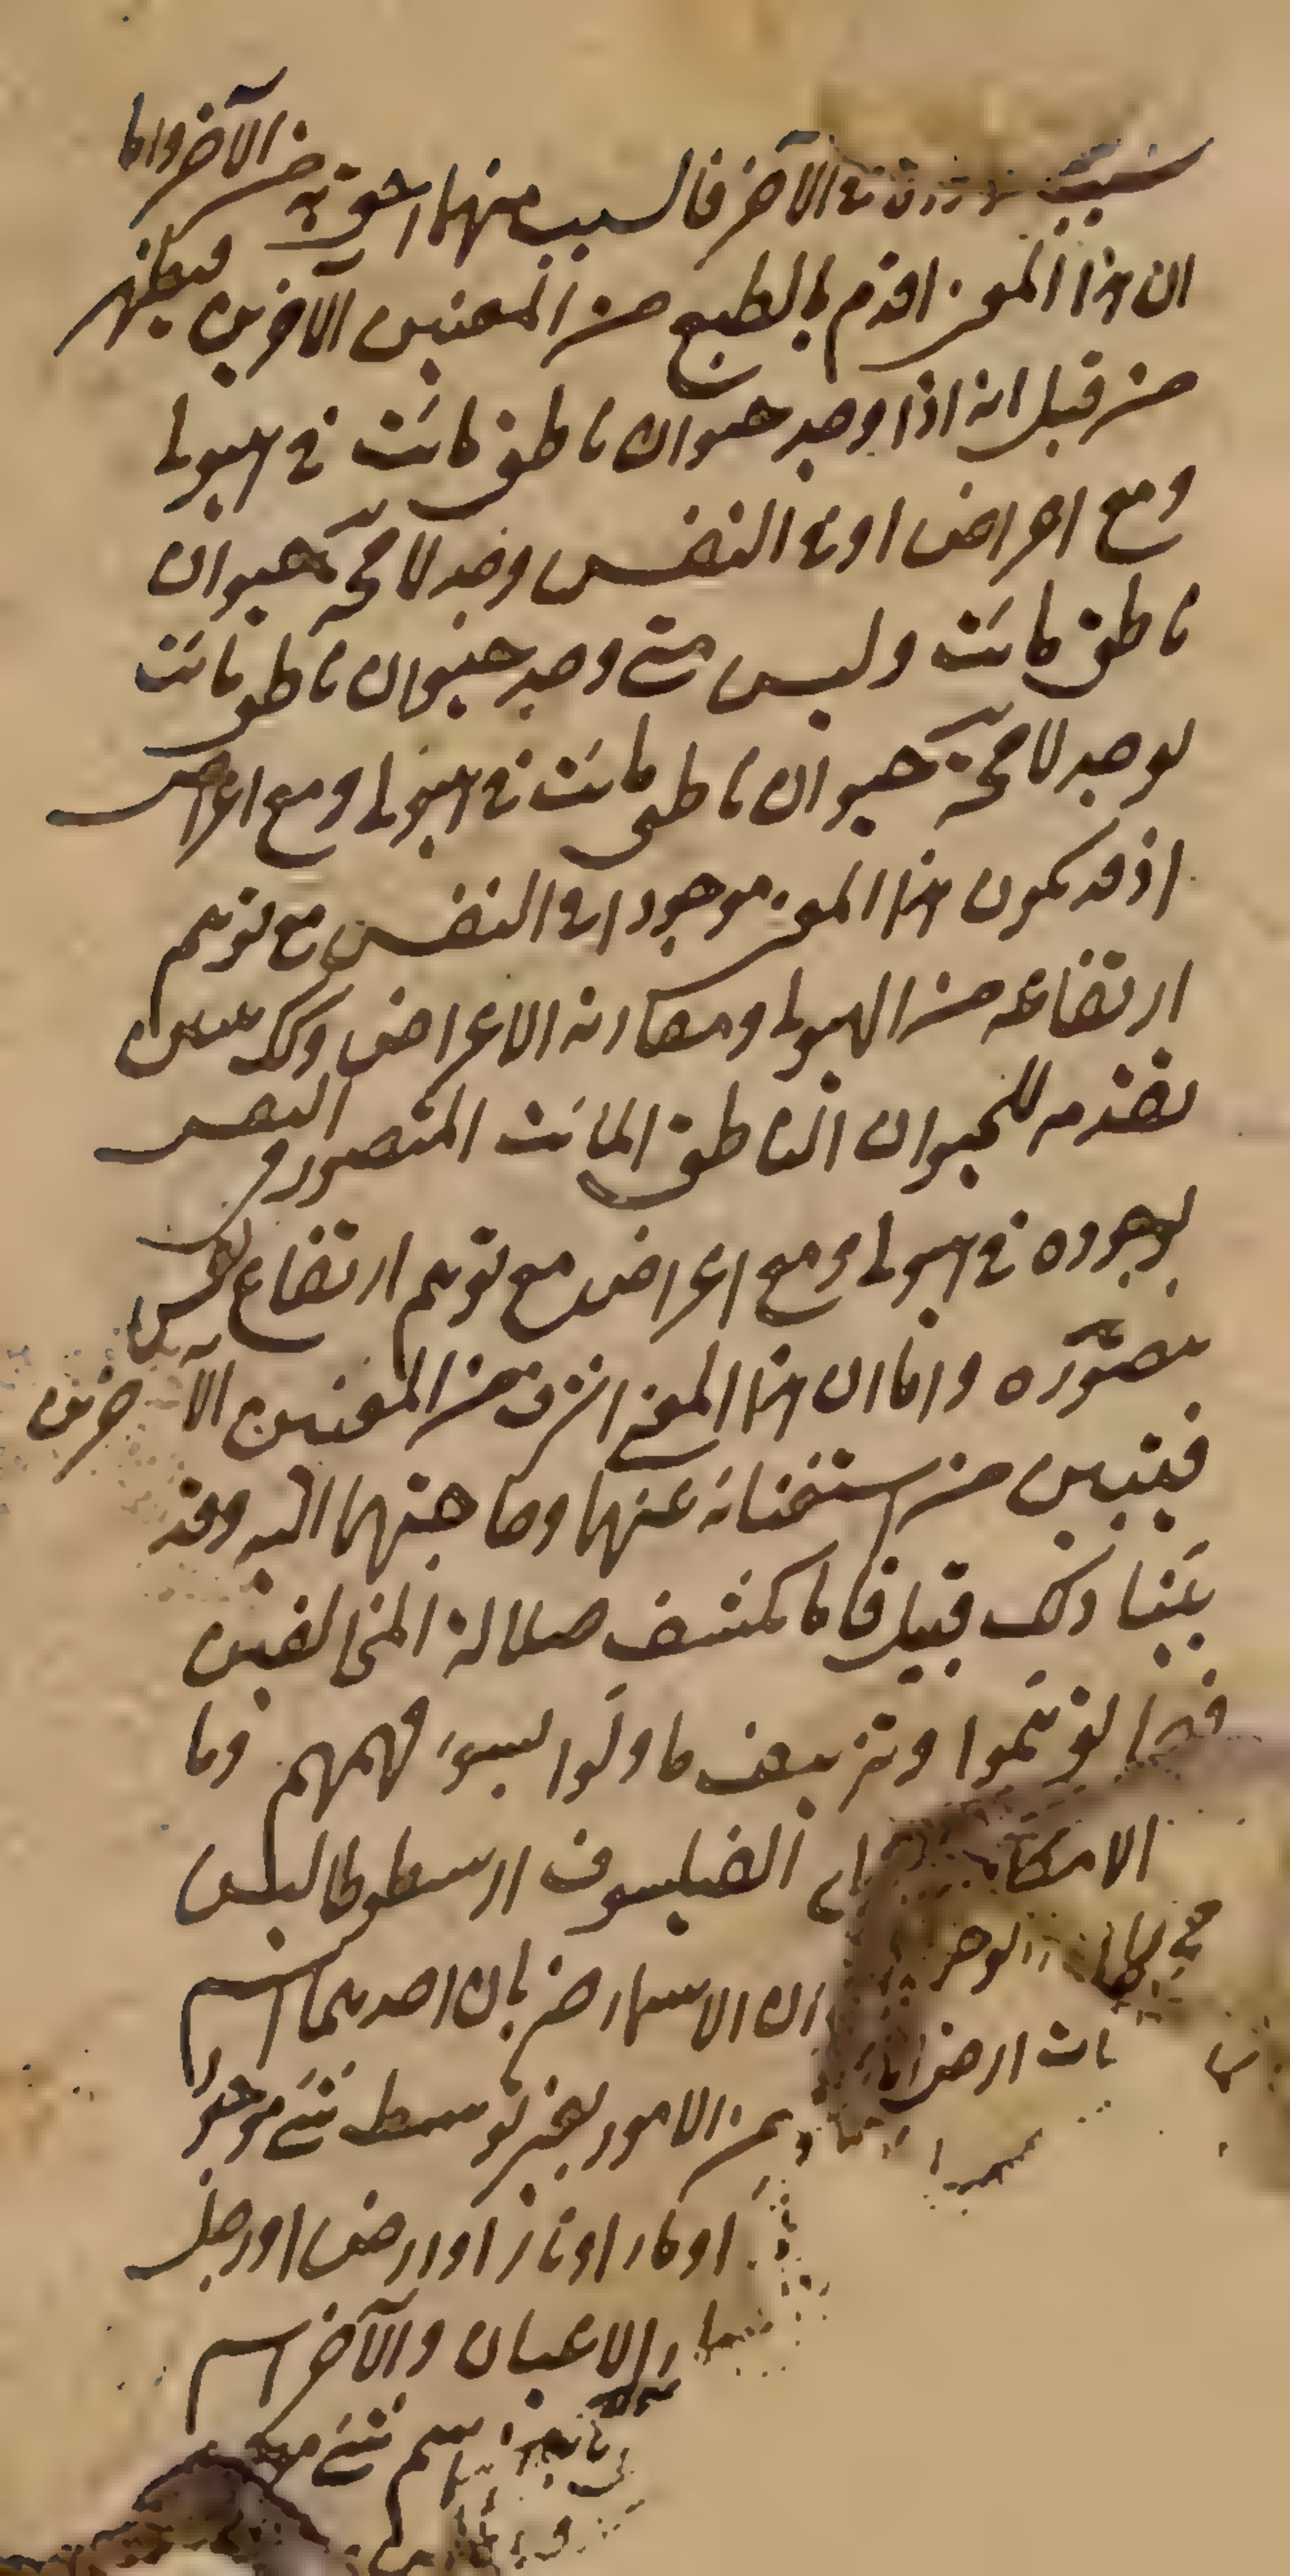 سبب الآخر فالسبب منهما احق به من الآخر واما
ان هذا المعنى اقدم بالطبع من المعنيين الآخرين فيظهر
من قبل انه اذا وجد حيوان ناطق مائت في هيولى
ومع اعراض او في النفس وجد لا محٓة حيوان
ناطق مائت وليس متى وجد حيوان ناطق مائت
يوجد لا محٓة حيوان ناطق مائت في هيولى ومع اعراض
اذ قد يكون هذا المعنى موجودا في النفس مع توهم
ارتفاعه من الهيولى ومقارنة الاعراض وكك يتبين
تقدمه للحيوان الناطق المائت المتصور في النفس
بوجوده في هيولى ومع اعراض مع توهم ارتفاع نفس
تتصوّره واما ان هذا المعنى اشرف من المعنيين الآخرين
فيتبين من استغنائه عنهما وحاجتهما اليه وقد
بيّنا ذلك قبيل فاما كشف ضلالة المخالفين
فيما توهّموا وتزييف ما ولّدوا لسوء فهمهم وما
الفيلسوف ارسطوطاليس
ان الاسماء ضربان احدهما اسم
من الامور بغير توسط شيء موجود
او ماء او نار او ارض او رجل
الاعيان والآخر اسم
اسم شيء